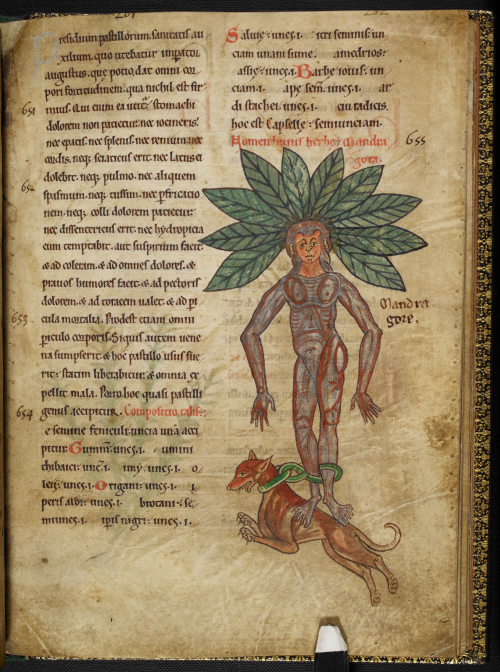 residuum pastillorum sanitatis au
xilium. quo utebatur imperator
augustus. que potio dat omni cor
pori fortitudinem. qua nichil est fir
651
mius. Qui enim ea utitur stomachi
dolorem non pacietur. nec iocineris.
nec epacis. nec splenis. nec renium. nec
cordis. neq; sciaticus erit. nec latus ei
652
dolebit. neq; pulmo. nec aliquem
spasmum. neq; tussim. nec
nem. neq; colli dolorem pacietur.
nec dissentericus erit. nec hydropicia
eum temptabit. aut suspirium faciet.
& ad coleram. & ad omnes dolores. &
prauos humores facit. & ad pectoris
dolorem. & ad toracem ualet. & ad
653
cula mortalia. Prodest etiam omni
periculo corporis. Siquis autem uene
na sumpserit. & hoc pastillo usus fue
rit: statim liberabitur. & omnia ex
pellit mala. hoc quasi pastilli
654
genus accipitur. Compositio talis:
e semine feniculi. uncia una acci
pitur. Gummi. unc. i. umini
unc. i. unc. i. o
unc. i. Origani. unc. i. i
peris albi. unc. i. se
miunc. i. nigri. unc. i.
Saluie. unc. i. seminis. un
ciam unam sume. amedrios.
unc. i. Barbe iouis. un
ciam. i. sem. unc. i. ar
di unc. i. radicis
hoc est Capselle. semunciam.
Nomen huius herbe: Mandra
gora.
655
Mandra
gore.